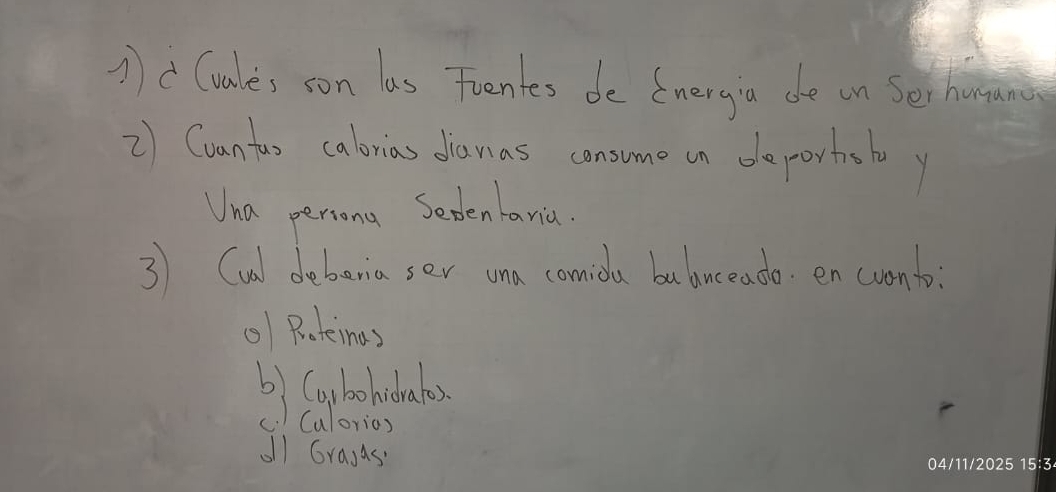 1) ¿Cuales son las Fuentes de Energia de un Ser humano
2) Cuantas calorias diarias consume un deportista y
Una persona Sedentaria.
3) Cual deberia ser una comida balanceada. en cuanto:
a) Proteinas
b) Carbohidratos.
c) Calorias
d) Grasas.
04/11/2025 15:34